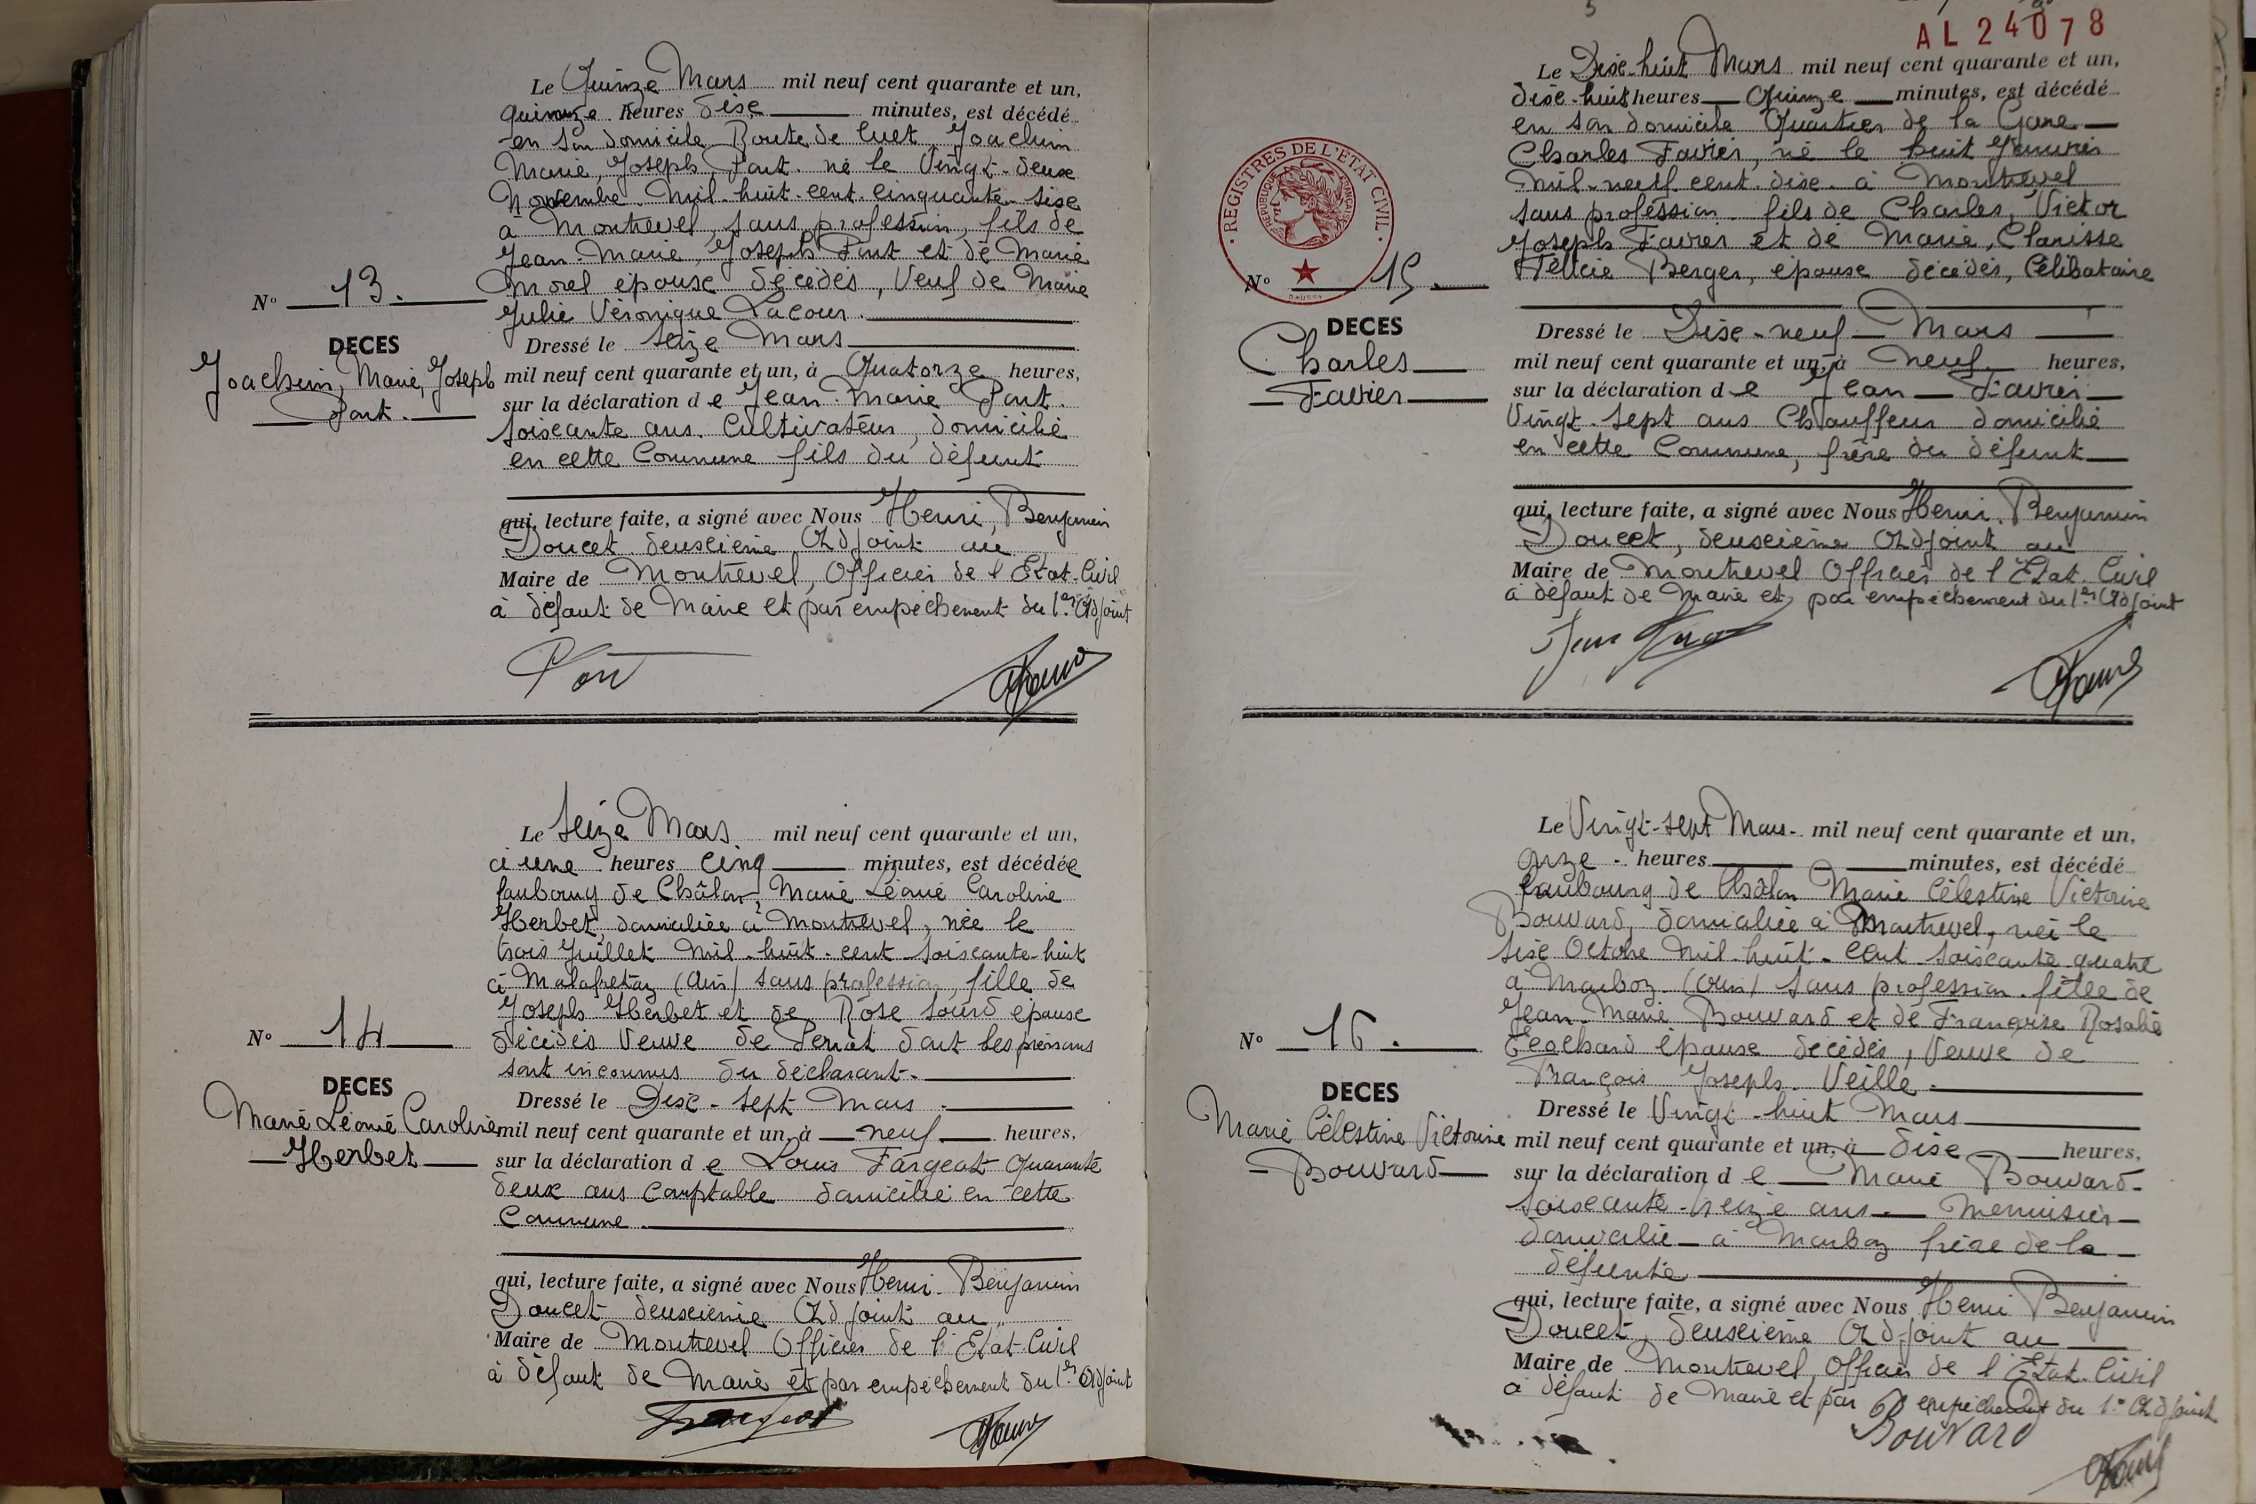 Le Quinze Mars mil neuf cent quarante et un,
quinze heures dix minutes, est décédé
en son domicile Route de Cuet Joachim
Marie, Joseph, Pont. né le Vingt-deux
Novembre mil-huit-cent-cinquante-six
à Montrevel, sans profession, fils de
Jean Marie, Joseph Pont et de Marie
Morel épouse décédés, Veuf de Marie
N° 13.
Julie Véronique Lacour.
DECES
Joachim, Marie, Joseph
Pont.
Dressé le seize Mars
mil neuf cent quarante et un, à Quatorze heures,
sur la déclaration de Jean-Marie Pont.
soixante ans. Cultivateur, domicilié
en cette Commune fils du défunt
qui, lecture faite, a signé avec Nous Henri, Benjamin
Doucet deuxième Adjoint au
Maire de Montrevel, Officier de l'Etat-Civil
à défaut de Maire et par empêchement du 1er Adjoint
Pont
Le Seize Mars mil neuf cent quarante et un,
à une heures cinq minutes, est décédée
faubourg de Châlon, Marie Léonie Caroline
Herbet, domiciliée à Montrevel, née le
trois Juillet mil-huit-cent-soixante-huit
à Malafretaz (Ain) sans profession, fille de
Joseph Herbet et de Rose Sourd épouse
N° 14
décédés Veuve de Perrat dont les prénoms
sont inconnus du déclarant.
DECES
Marie Léonie Caroline
Herbet
Dressé le Dix-sept Mars
mil neuf cent quarante et un, à neuf heures,
sur la déclaration de Louis Fargeot quarante
deux ans comptable domicilié en cette
Commune.
qui, lecture faite, a signé avec Nous Henri Benjamin
Doucet deuxième Adjoint au
Maire de Montrevel Officier de l'Etat-Civil
à défaut de Maire et par empêchement du 1er Adjoint
Fargeot
AL 24078
Le Dix-huit Mars mil neuf cent quarante et un,
dix-huit heures Quinze minutes, est décédé
en son domicile Quartier de la Gare
Charles Favier, né le huit Janvier
mil-neuf cent-dix à Montrevel
sans profession fils de Charles, Victor
Joseph Favier et de Marie, Clarisse
Félicie Berger, épouse décédés, Célibataire
REGISTRES DE L'ETAT CIVIL
REPUBLIQUE FRANÇAISE
N° 15.
DECES
Charles
Favier
Dressé le Dix-neuf Mars
mil neuf cent quarante et un, à neuf heures,
sur la déclaration de Jean Favier
Vingt-sept ans Chauffeur domicilié
en cette Commune, frère du défunt
qui, lecture faite, a signé avec Nous Henri Benjamin
Doucet, deuxième Adjoint au
Maire de Montrevel Officier de l'Etat-Civil
à défaut de Maire et par empêchement du 1er Adjoint
Le Vingt-sept Mars mil neuf cent quarante et un,
onze heures minutes, est décédé
faubourg de Châlon Marie Célestine Victorine
Bouvard, domiciliée à Montrevel, née le
six Octobre mil-huit-cent soixante quatre
à Marboz (Ain) sans profession fille de
Jean-Marie Bouvard et de Françoise Rosalie
N° 16.
épouse décédés, Veuve de
François Joseph Veille.
DECES
Marie Célestine Victorine
Bouvard
Dressé le Vingt-huit Mars
mil neuf cent quarante et un, à dix heures,
sur la déclaration de Marie Bouvard
soixante-treize ans Menuisier
domicilié à Marboz frère de la
défunte
qui, lecture faite, a signé avec Nous Henri Benjamin
Doucet, deuxième Adjoint au
Maire de Montrevel, Officier de l'Etat-Civil
à défaut de Maire et par empêchement du 1er Adjoint
Bouvard